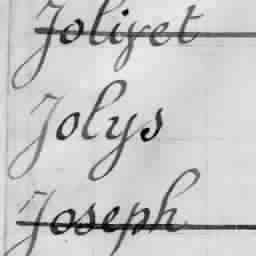 Jolivet
Jolys
Joseph